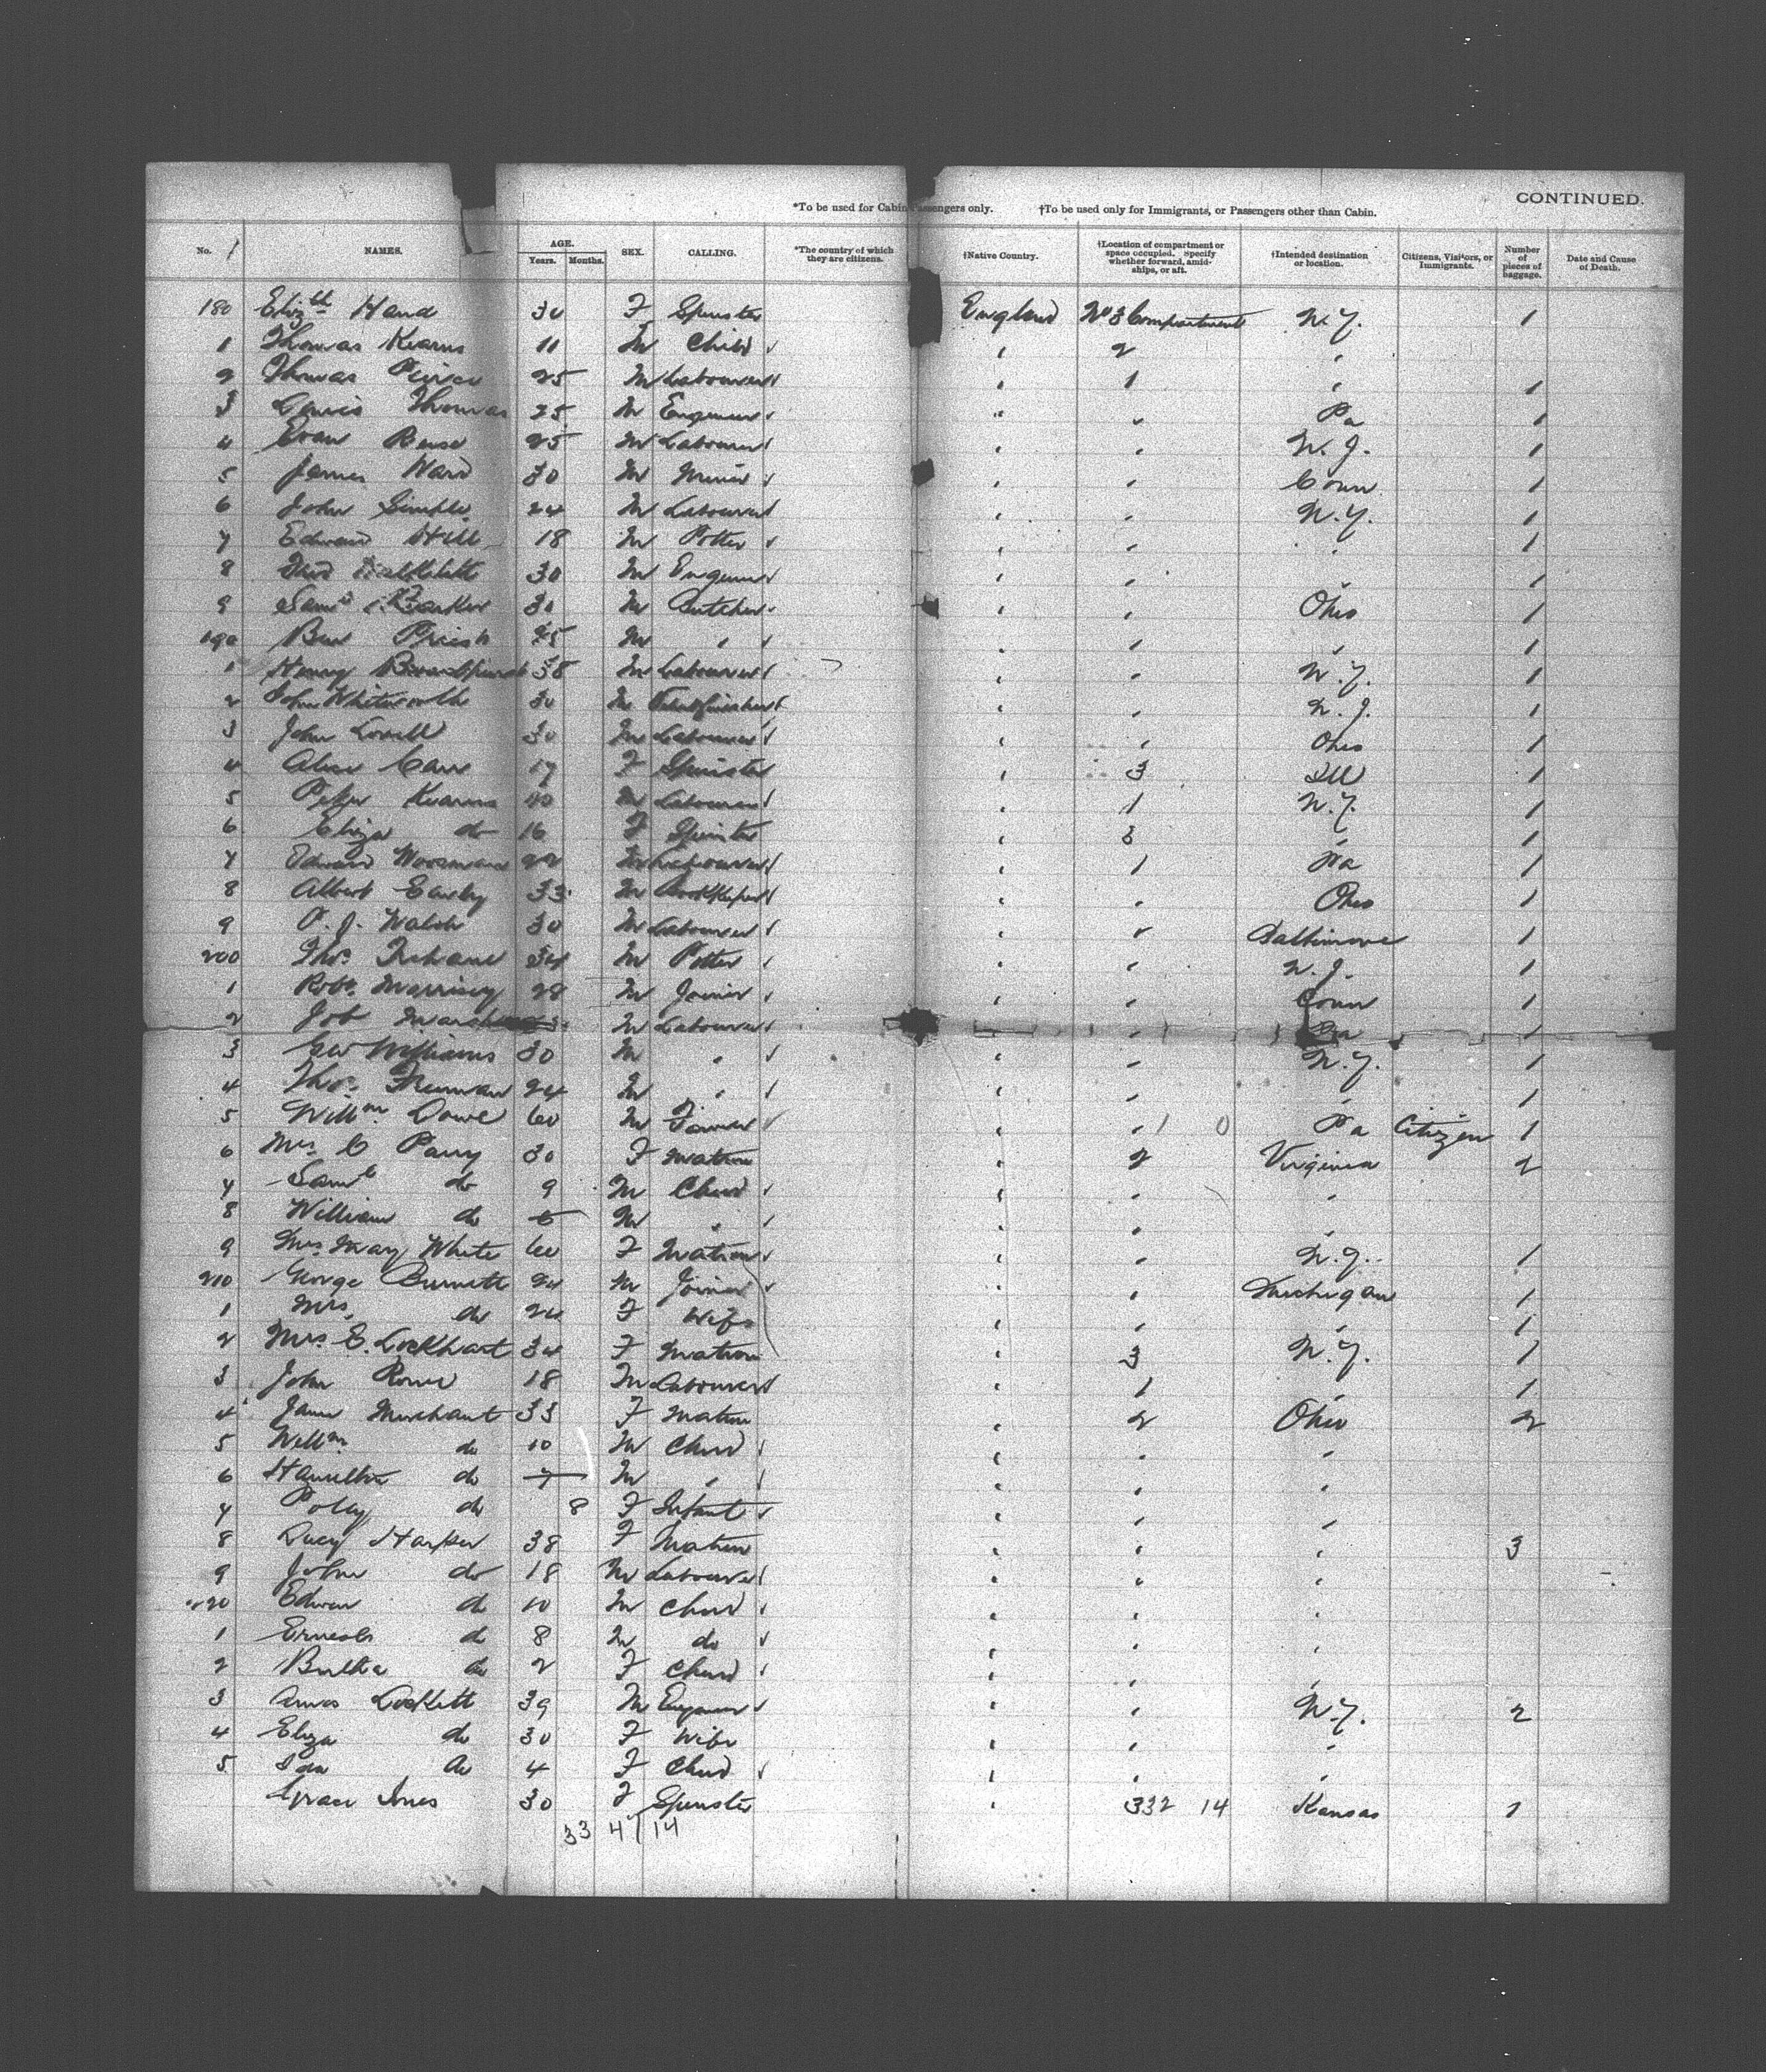 CONTINUED.
*To be used for Cabin Passengers only. †To be used only for Immigrants, or Passengers other than Cabin.
No. NAMES. AGE. Years. Months. SEX. CALLING. *The country of which they are citizens. †Native Country. †Location of compartment or space occupied. Specify whether forward, amidships, or aft. †Intended destination or location. Citizens, Visitors, or Immigrants. Number of pieces of baggage. Date and Cause of Death.
180 Elizth Hand 30 F Spinster England No 3 Compartment N.Y. 1
1 Thomas Kearns 11 M Child 2
2 Thomas 25 M Labourer 1 1
3 Thomas 25 M Engineer Pa 1
4 Evan 25 M Labourer N.J. 1
5 James Ward 30 M Miner Conn 1
6 John 24 M Labourer N.Y. 1
7 Edward Hill 18 M Potter 1
8 30 M Engineer 1
9 Saml Barker 30 M Butcher Ohio 1
190 Ben M 1
1 Henry 38 M Labourer N.Y. 1
2 John Whitworth 30 M N.J. 1
3 John Lovell 30 M Labourer Ohio 1
4 Alice Carr 17 F Spinster 3 Ill 1
5 Peter Kearns 40 M Labourer 1 N.Y. 1
6 Eliza do 16 F Spinster 3 1
7 Edward 22 M Labourer 1 Pa 1
8 Albert Earley 33 M Bookkeeper Ohio 1
9 P. J. Walsh 30 M Labourer Baltimore 1
200 Thos. 34 M Potter N.J. 1
1 Robt. Morrisey 28 M Joiner Conn 1
2 Job M Labourer Pa 1
3 Geo Williams 30 M N.Y. 1
4 Thos. Freeman 24 M 1
5 Willm. Dowe 60 M Farmer 1 0 Pa Citizen 1
6 Mrs. C Parry 30 F Matron 2 Virginia 2
7 Saml do 9 M Child
8 William do 5 M
9 Mrs. May White 60 F Matron N.J. 1
210 George Burnett 24 M Joiner Michigan 1
1 Mrs. do 24 F Wife 1
2 Mrs E. Lockhart 34 F Matron 3 N.Y. 1
3 John Rowe 18 M Labourer 1 1
4 Jane Merchant 33 F Matron 2 Ohio 2
5 Willm. do 10 M Child
6 Hamilton do 7 M
7 Polly do 8 F Infant
8 Lucy Harper 38 F Matron 3
9 John do 18 M Labourer
220 Edwin do 10 M Child
1 Ernest do 8 M do
2 Bertha do 2 F Child
3 Amos Lockett 39 M Engineer N.Y. 2
4 Eliza do 30 F Wife
5 Ida do 4 F Child
Grace Jones 30 F Spinster 332 14 Kansas 1
33 4 14